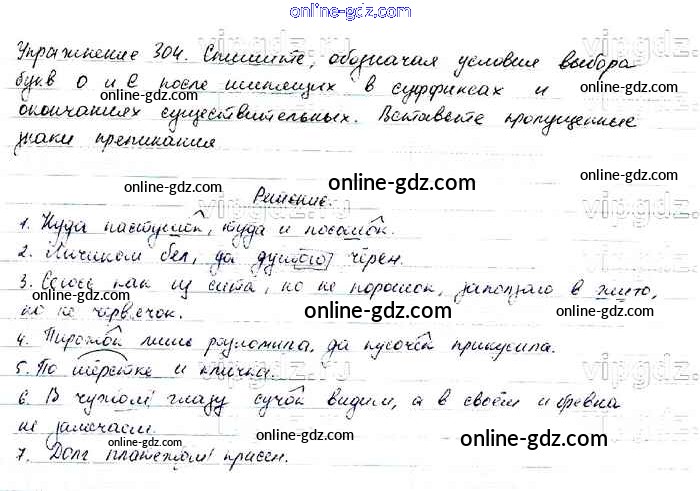 online-gdz.com
Упражнение 304. Спишите, обозначая условия выбора
букв О и Е после шипящих в суффиксах и
окончаниях существительных. Вставьте пропущенные
знаки препинания
online-gdz.com online-gdz.com online-gdz.com
Решение.
1. Куда пастушок, туда и посошок.
2. Личиком бел, да душою черен.
3. Сеюсь как из сита, но не порошок, заползаю в
online-gdz.com online-gdz.com online-gdz.com
но не червячок.
4. Пирожок лишь разломила, да кусочек прикусила.
5. По шерстке и кличка.
6. В чужом глазу сучок видим, а в своём и бревна
не замечаем.
online-gdz.com online-gdz.com online-gdz.com
7. Долг платежом красен.